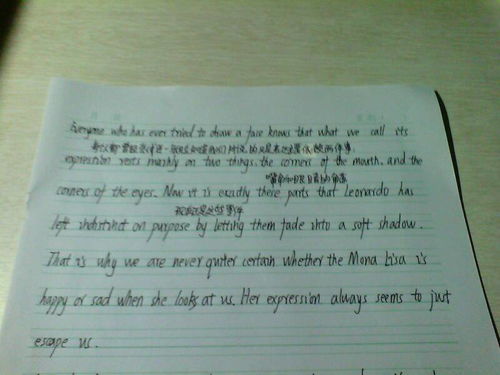 Everyone who has ever tried to draw a face knows that what we call its
expression rests mainly on two things. the corners of the mouth. and the
嘴角和眼睛的角落
corners of the eyes. Now it is exactly there parts that Leonardo has
left indistinct on purpose by letting them fade into a soft shadow.
That is why we are never quiter certain whether the Mona Lisa is
happy or sad when she looks at us. Her expression always seems to just
escape us.